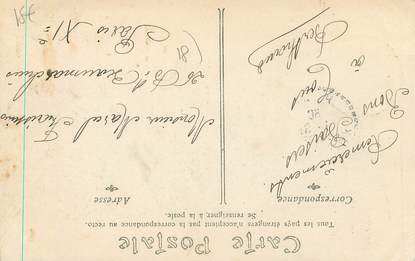 Carte Postale
Tous les pays étrangers n'acceptent pas la correspondance au recto.
Se renseigner, à la poste.
Correspondance
Adresse
Remerciements.
Bons Baisers
à tous
Berthaud
Monsieur Marcel
26 Bd Beaumarchais
Paris XIe
15€